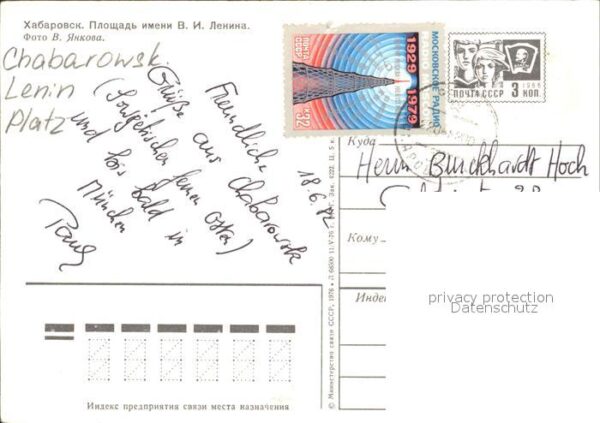 Хабаровск. Площадь имени В. И. Ленина.
Фото В. Янкова.
Chabarowski
Lenin
Platz
Freundliche
Grüße aus Chabarowsk
(Sowjetischen fernen Osten)
und bis bald in
München
18.6.82
МОСКОВСКОЕ РАДИО
1929 1979
ПОЧТА СССР
к32
1966
ПОЧТА СССР 3 КОП.
Куда
Herrn Burckhardt Hoch
Кому
Индек
privacy protection
Datenschutz
© Министерство связи СССР, 1976
Индекс предприятия связи места назначения